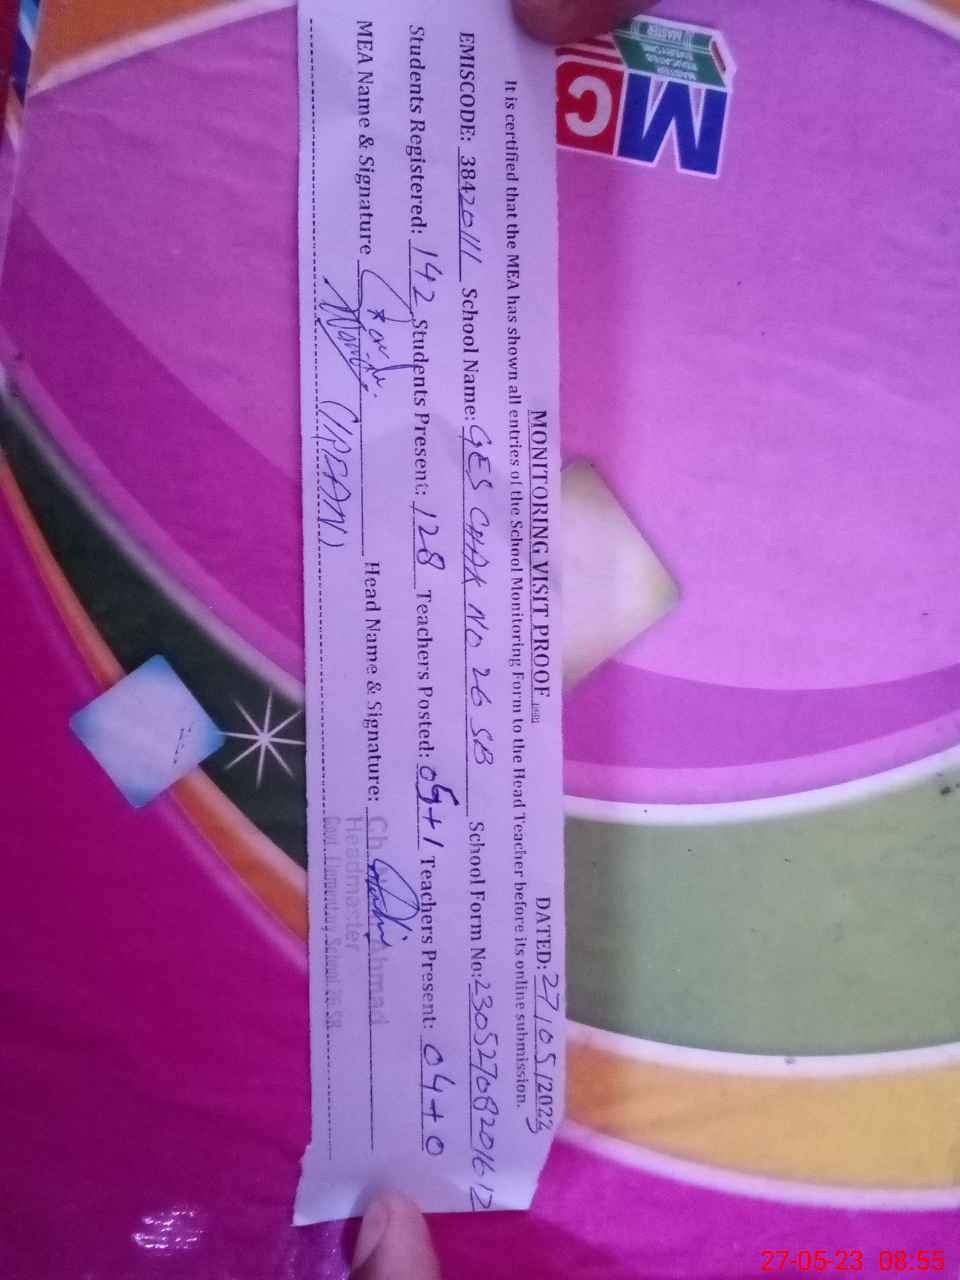 MONITORING VISIT PROOF DATED: 27/05/2023
It is certified that the MEA has shown all entries of the School Monitoring Form to the Head Teacher before its online submission.
EMISCODE: 38420111 School Name: GES CHAK NO 26 SB School Form No: 23052708201612
Students Registered: 142 Students Present: 128 Teachers Posted: 05+1 Teachers Present: 04+0
MEA Name & Signature Head Name & Signature: Ch Ahmad
(IRFAN) Headmaster
Govt. Elementary School 26 SB
MC
MASTER
EDUCATES
EVERYONE
MASTER
27-05-23 08:55